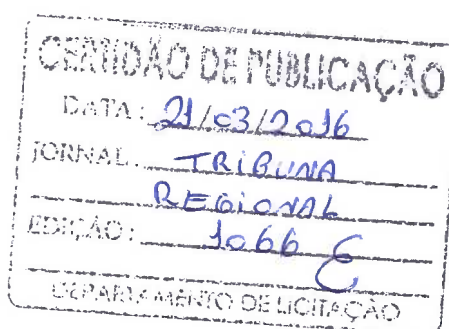 CERTIDÃO DE PUBLICAÇÃO
DATA: 21/03/2016
JORNAL: TRIBUNA
REGIONAL
EDIÇÃO: 1066
DEPARTAMENTO DE LICITAÇÃO